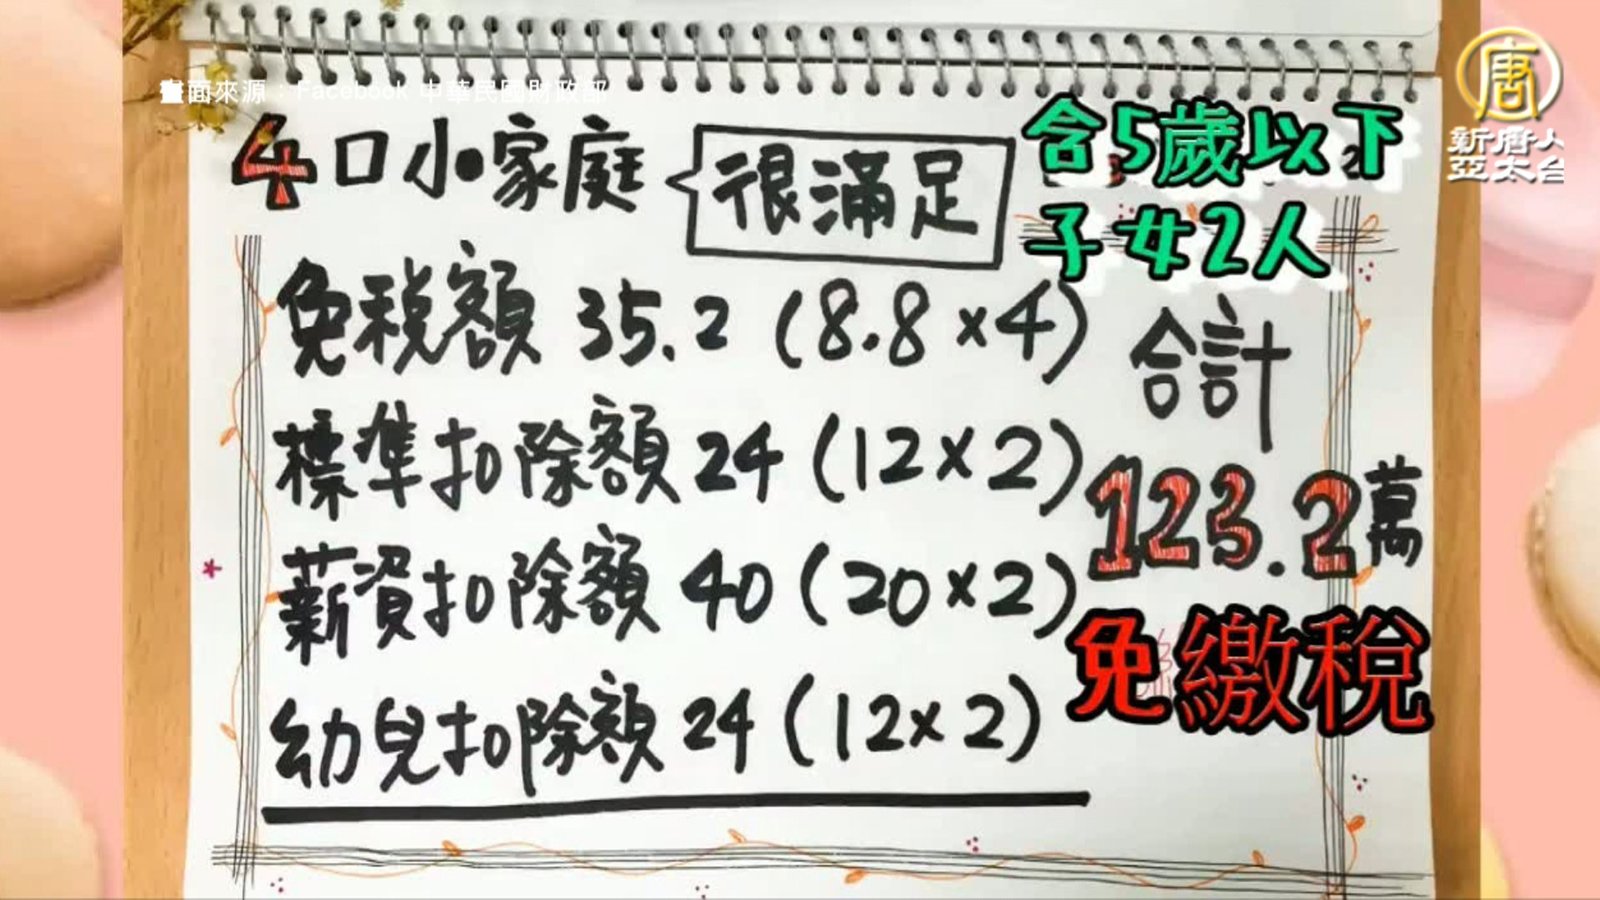 畫面來源：Facebook 中華民國財政部
唐
新唐人
亞太台
4口小家庭
很滿足
含5歲以下
子女2人
免稅額 35.2 (8.8×4)
標準扣除額 24 (12×2)
薪資扣除額 40 (20×2)
幼兒扣除額 24 (12×2)
合計
123.2萬
免繳稅